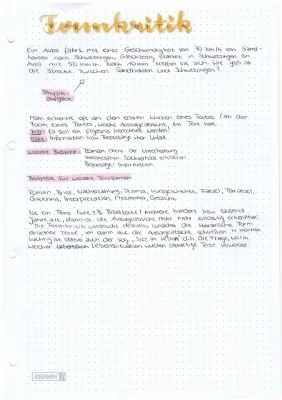 Formkritik
Ein Auto fährt mit einer Geschwindigkeit von 70 km/h von Sand-
hausen nach Schwetzingen. Gleichzeitig startet in Schwetzingen ein
Auto mit 50 km/h. Nach treffen sie sich. Wie groß ist
die Strecke zwischen Sandhausen und Schwetzingen?
Physik-
aufgabe
Man erkennt oft an den ersten Worten eines Textes / an der
Form eines Textes, welche Aussageabsicht ein Text hat.
hier: Es soll ein Ergebnis berechnet werden,
nicht: Information bzw. Reportage über Unfall
weitere Beispiele: Roman dient der Unterhaltung
Interpretation: Sachverhalt erklären
Reportage: Information
Beispiele für weitere Textformen
Roman, Brief, Nacherzählung, Drama, Kurzgeschichte, Fabel, Parabel,
Gleichnis, Interpretation, Märchen, Gedicht
Ist ein Text (wie z.B. Bibeltexte) mehrere hundert bzw. tausend
Jahre alt, dann ist die Aussageabsicht nicht mehr eindeutig erkennbar.
Die Formkritik untersucht deshalb zunächst die literarische Form
einzelner Texte, um dann auf die Aussageabsicht schließen zu können.
Wichtig ist dabei auch der sog. „Sitz im Leben“ d.h. die Frage, wo/in
welcher Lebenssituation werden derartige Texte verwendet.